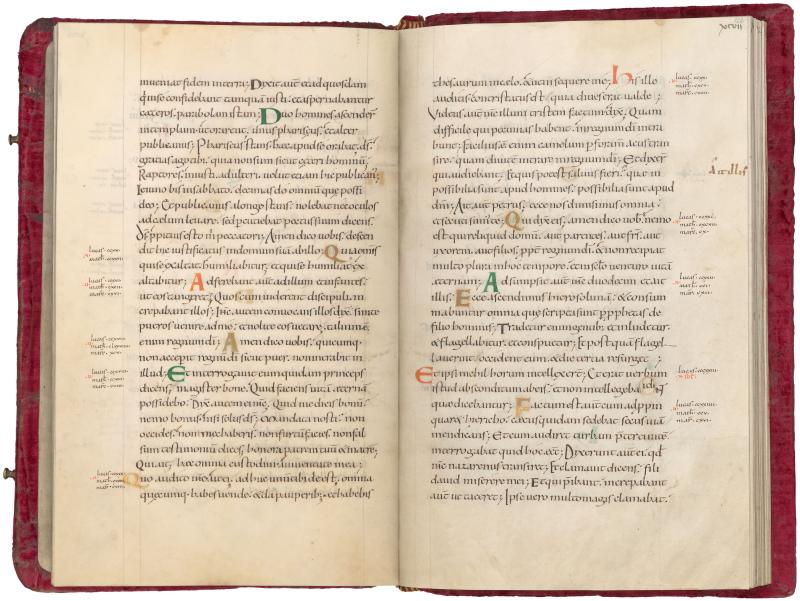 inueniat fidem in terra; Dixit aut̃ et ad quosdam
qui in se confidebant tamquam iusti · et aspernabantur
ceteros · parabolam istam; Duo homines ascender̃
in templum ut orarent · unus pharisęus · et alter
publicanus; Pharisęus stans · hęc apud se orabat · dš
gratias ago tibi · quia non sum sicut cęteri hominũ;
Raptores · iniusti · adulteri · uelut etiam hic publican;
Ieiuno bis in sabbato · decimas do omniũ quę possi
deo; Et publicanus a longe stans · nolebat nec oculos
ad cęlum leuare · sed percutiebat pectus suum dicens ·
dš propicius esto m̃ peccatori; Amen dico uobis · descen
dit hic iustificatus in domum suã ab illo; Quia omnis
qui se exaltat · humiliabitur · et qui se humiliat · ex
altabitur; Adferebant aut̃ ad illum et infantes ·
ut eos tangeret; Quos cum uiderent discipuli · in
crepabant illos; Ihs̃ autem conuocans illos dix̃ · sinite
pueros uenire ad me · et nolite eos uetare · talium ẽ
enim regnum dĩ; Amen dico uobis · quicumq;
non acceperit regnũ dĩ sicut puer · non intrabit in
illud; Et interrogauit eum quidam princeps
dicens · magister bone · Quid faciens uitã ęternã
possidebo; Dix̃ autem ei ihs̃ · Quid me dicis bonũ ·
nemo bonus nisi solus dš; Mandata nosti · non
occides · non mechaberis · non furtũ facies · non fal
sum testimoniũ dices; honora patrem tuũ et matrẽ;
Qui ait · hęc omnia custodiui a iuuentute mea;
Quo audito ihs̃ ait ei · adhuc unum tibi deest · omnia
quęcumq; habes uende · et da pauperib; · et habebis
xcvii
thesaurum in cęlo · et ueni sequere me; His ille
auditis contristatus est · quia diues erat ualde;
Videns aut̃ ihs̃ illum tristem factum dix̃ · Quam
difficile qui pecunias habent · in regnum dĩ intra
bunt; Facilius ẽ enim camelum per foramen acus tran
sire · quam diuitẽ intrare in regnum dĩ; Et dixer̃
qui audiebant; Et quis potest saluus fieri ·
a it illis
impossibilia sunt apud homines · possibilia sunt apud
dm̃; Ait aut̃ petrus · ecce nos dimisimus omnia ·
et secuti sum te; Qui dix̃ eis · amen dico uob̃ · nemo
est qui reliquid domũ · aut parentes · aut frs̃ · aut
uxorem · aut filios · propt̃ regnũ dĩ · et non recipiat
multo plura in hoc tempore · et in sęclo uenturo uitã
ęternam; Adsumpsit aut̃ ihs̃ duodecim · et ait
illis; Ecce ascendimus hierosolimã · et consum
mabuntur omnia quę scripta sunt per prophetas de
filio hominis; Tradetur enim gentib; et inludetur ·
et flagellabitur · et conspuetur; Et postquã flagel
lauerint · occident eum · et die tercia resurget;
Et ipsi nihil horum intellexer̃t; Et erat uerbum
istud absconditum ab eis · et non intellegebant
quę dicebantur; Factum est aut̃ cum adppin
quaret hiericho · cęcus quidam sedebat secus uiã
mendicans; Et cum audiret turbam pretereuntẽ ·
interrogabat quid hoc eēt; Dixerunt aut̃ ei · qd̃
ihs̃ nazarenus transiret; Et clamauit dicens · fili
dauid miserere mei; Et qui pribant · increpabant
aut̃ ut taceret; Ipse uero multo magis clamabat ·